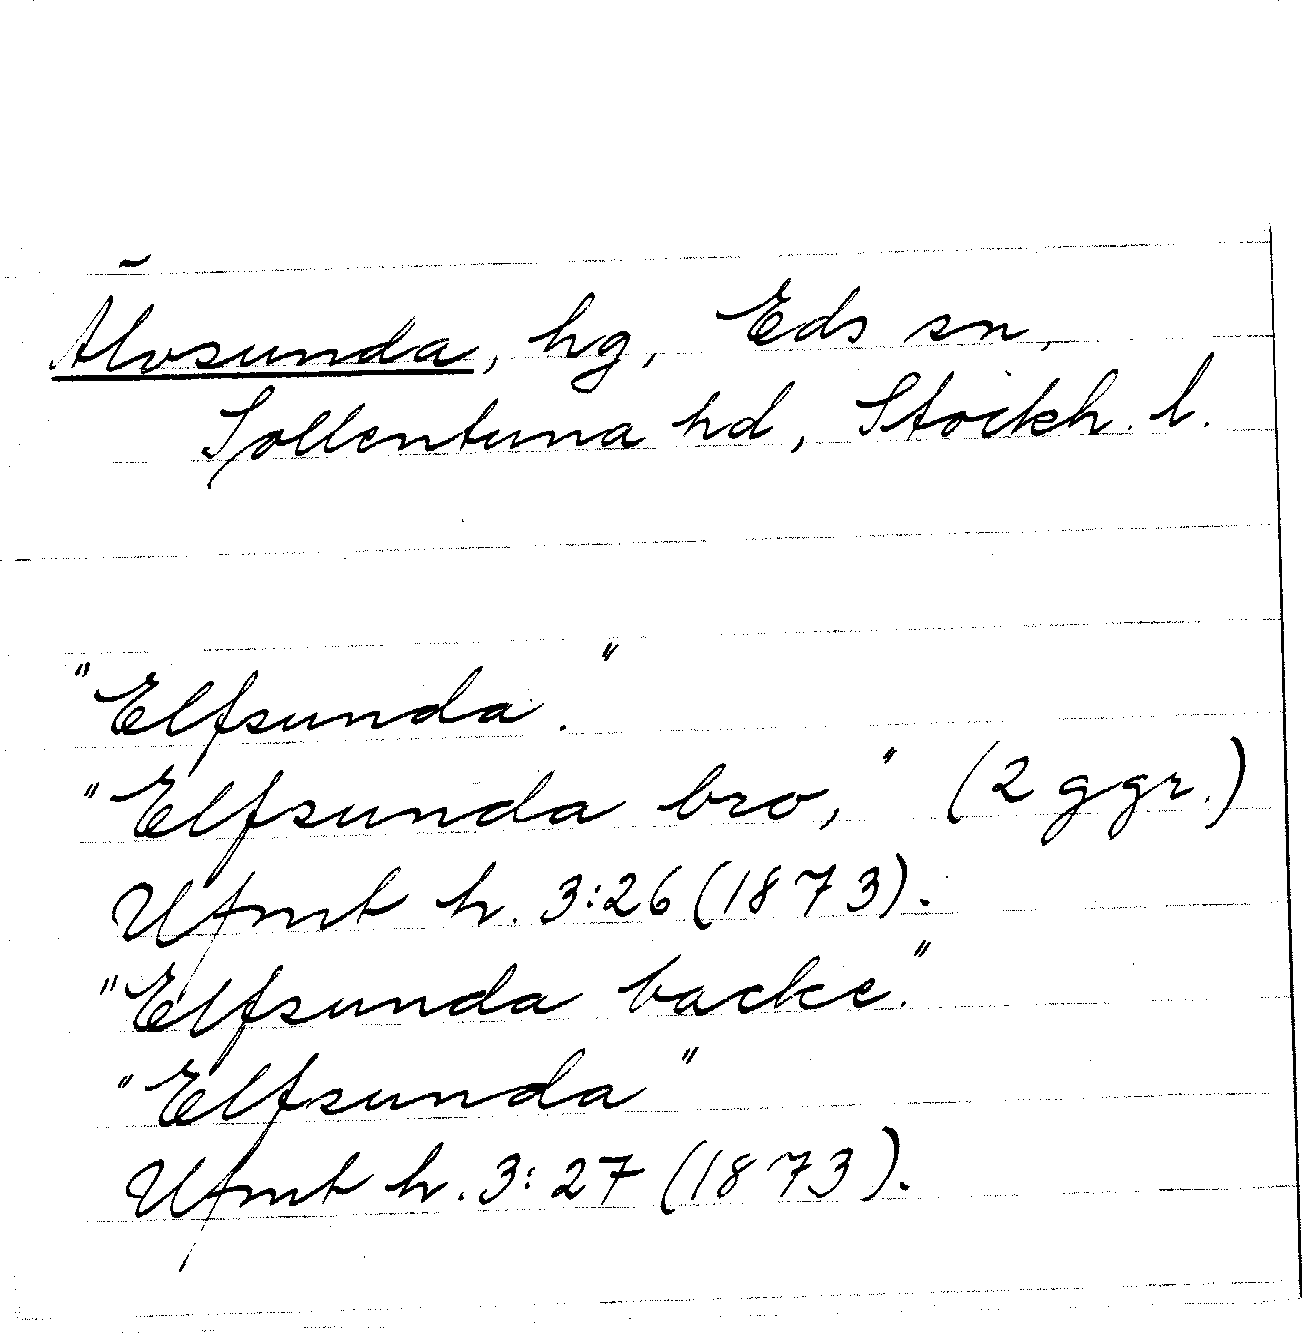 Älvsunda, hg, Eds sn,
Sollentuna hd, Stockh. l.
"Elfsunda."
"Elfsunda bro," (2 ggr.)
Ufmt h. 3:26 (1873).
"Elfsunda backe."
"Elfsunda"
Ufmt h. 3:27 (1873).